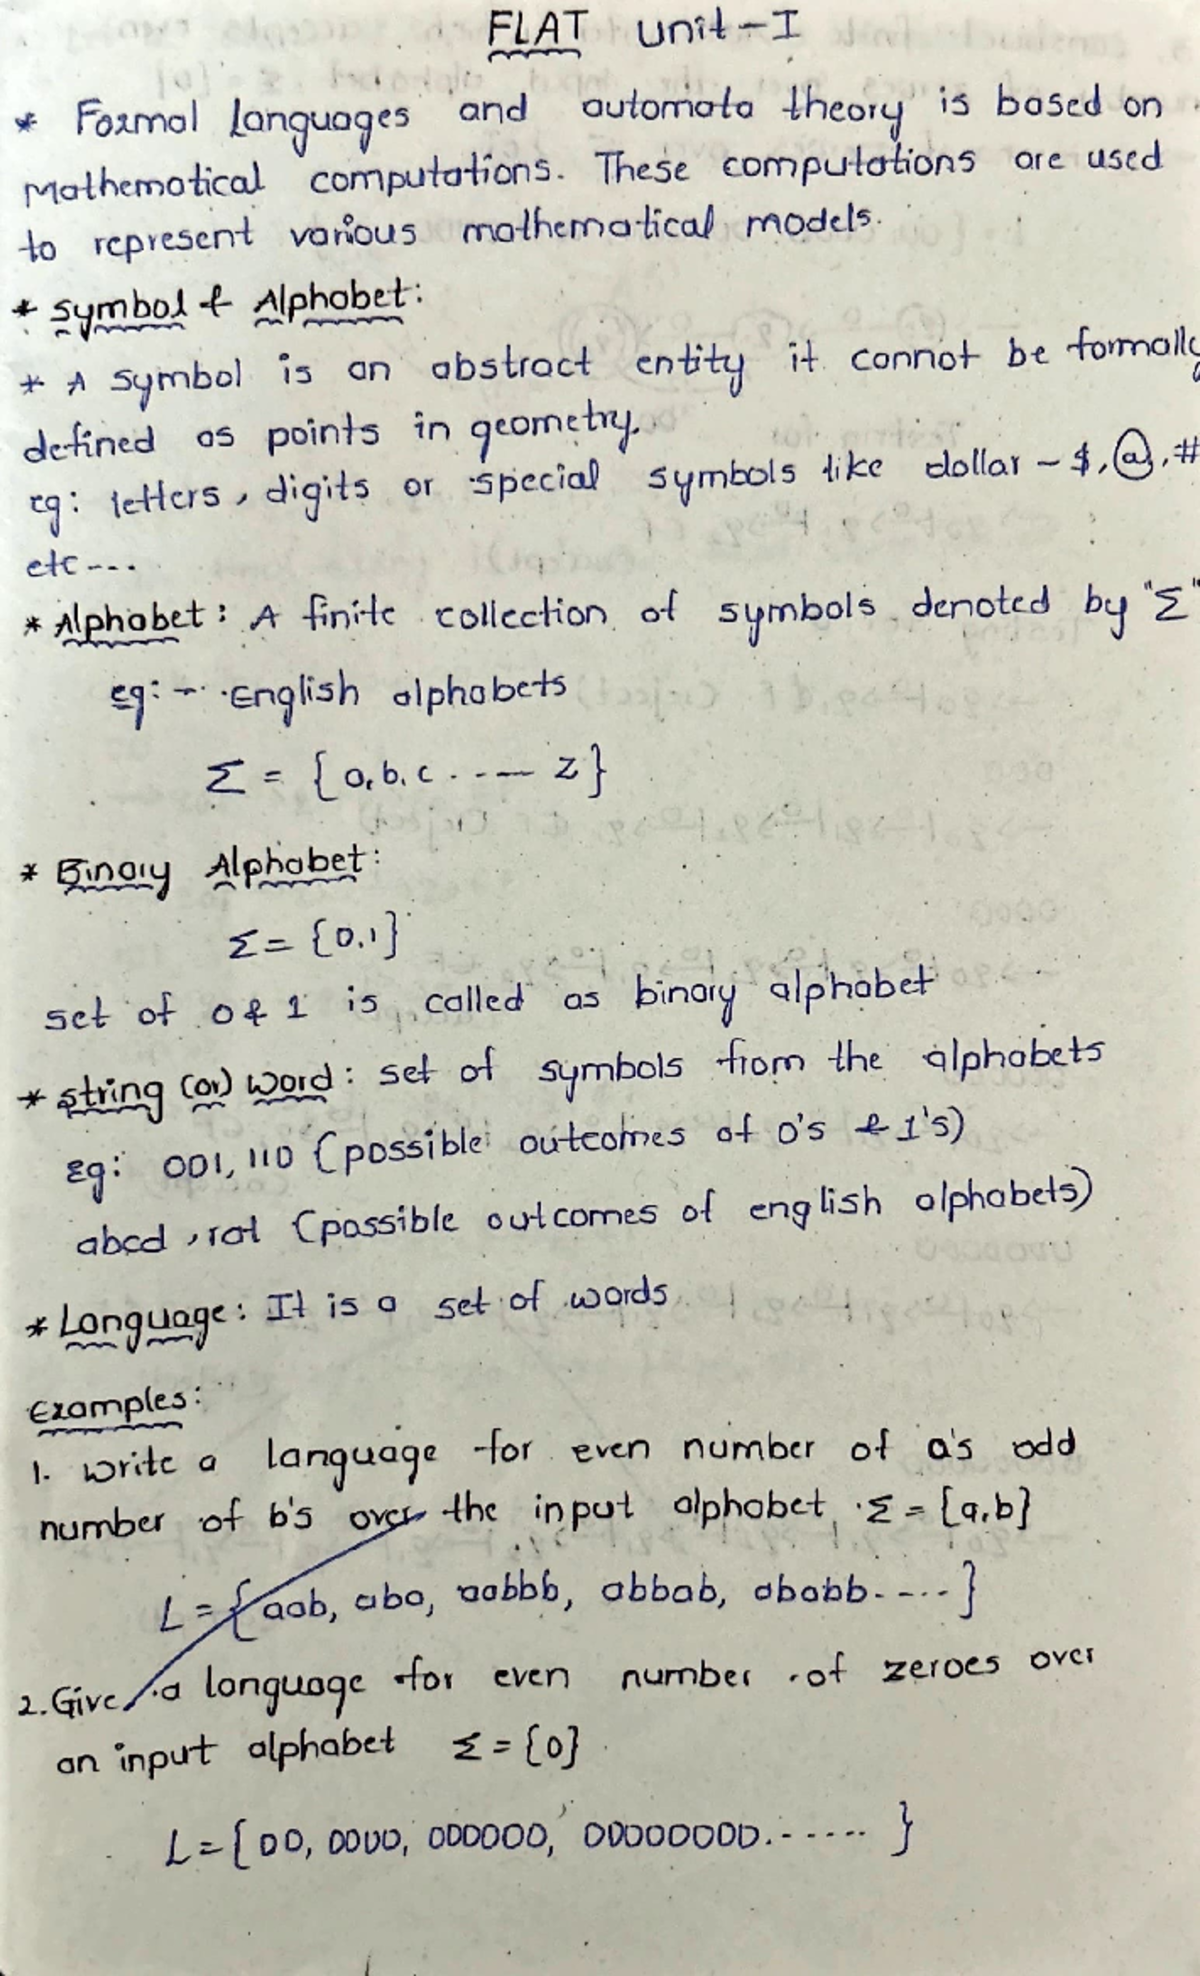 FLAT unit-I
* Formal Languages and automata theory is based on
Mathematical computations. These computations are used
to represent various mathematical models.
* Symbol & Alphabet:
* A symbol is an abstract entity it cannot be formally
defined as points in geometry.
eg: letters, digits or special symbols like dollar - $, @, #
etc---.
* Alphabet: A finite collection of symbols denoted by "Σ"
eg: - English alphabets
Σ = {a, b, c ..--- z}
* Binary Alphabet:
Σ = {0,1}
set of 0 & 1 is called as binary alphabet
* string (or) word: set of symbols from the alphabets
Eg: 001, 110 (possible outcomes of 0's & 1's)
abcd, rat (possible outcomes of english alphabets)
* Language: It is a set of words
Examples:
1. write a language for even number of a's odd
number of b's over the input alphabet Σ = {a,b}
L = {aab, aba, aabbb, abbab, ababb-....}
2. Give a language for even number of zeroes over
an input alphabet Σ = {0}
L = {00, 0000, 000000, 00000000.------}